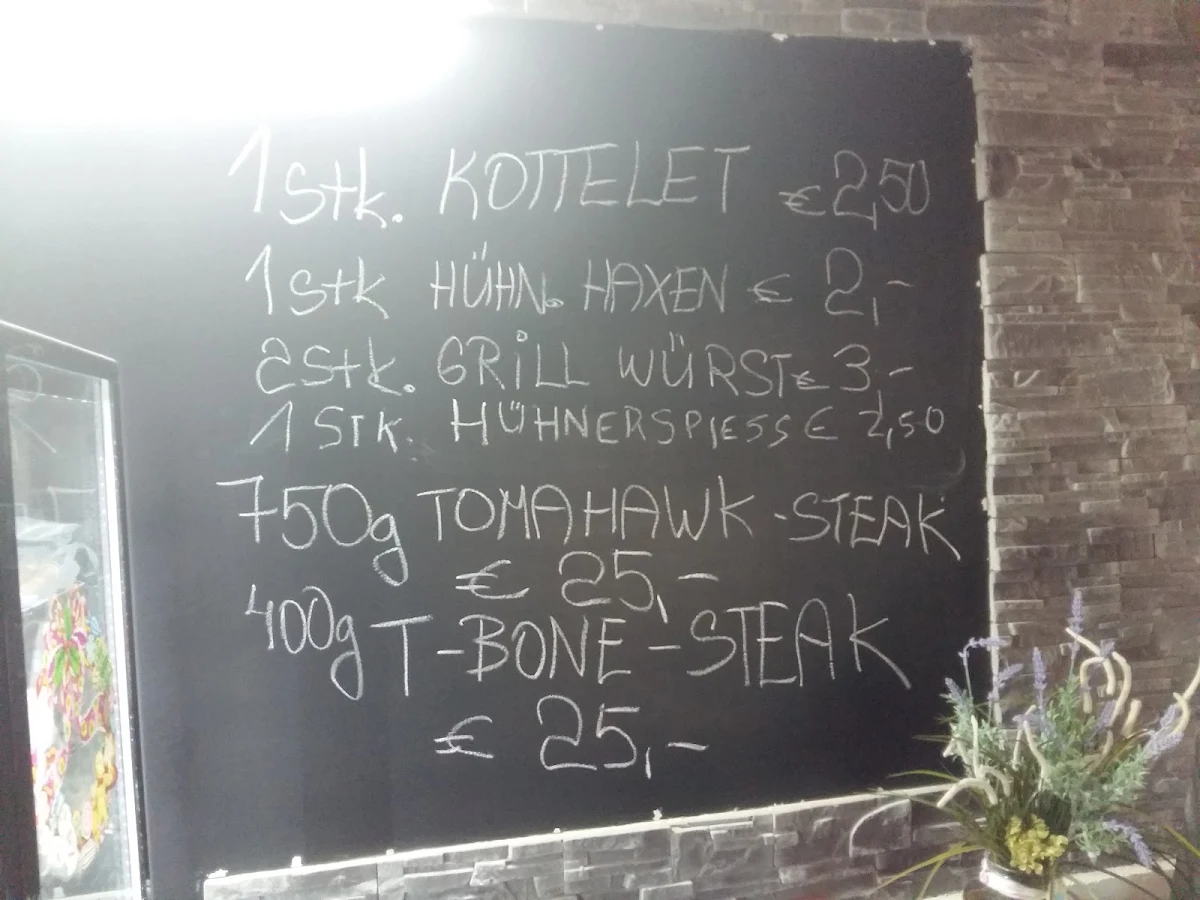 1 Stk. KOTTELET € 2,50
1 Stk HÜHN. HAXEN € 2,-
2 Stk. GRiLL WÜRST € 3,-
1 STK. HÜHNERSPIESS € 2,50
750g TOMAHAWK-STEAK
€ 25,-
400g T-BONE-STEAK
€ 25,-